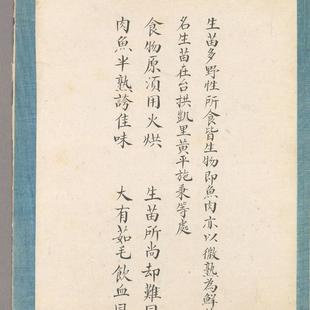 生苗多野性所食皆生物即魚肉亦以微熟為鮮
名生苗在台拱凱里黃平施秉等處
食物原須用火烘 生苗所尚却難
肉魚半熟誇佳味 大有茹毛飲血